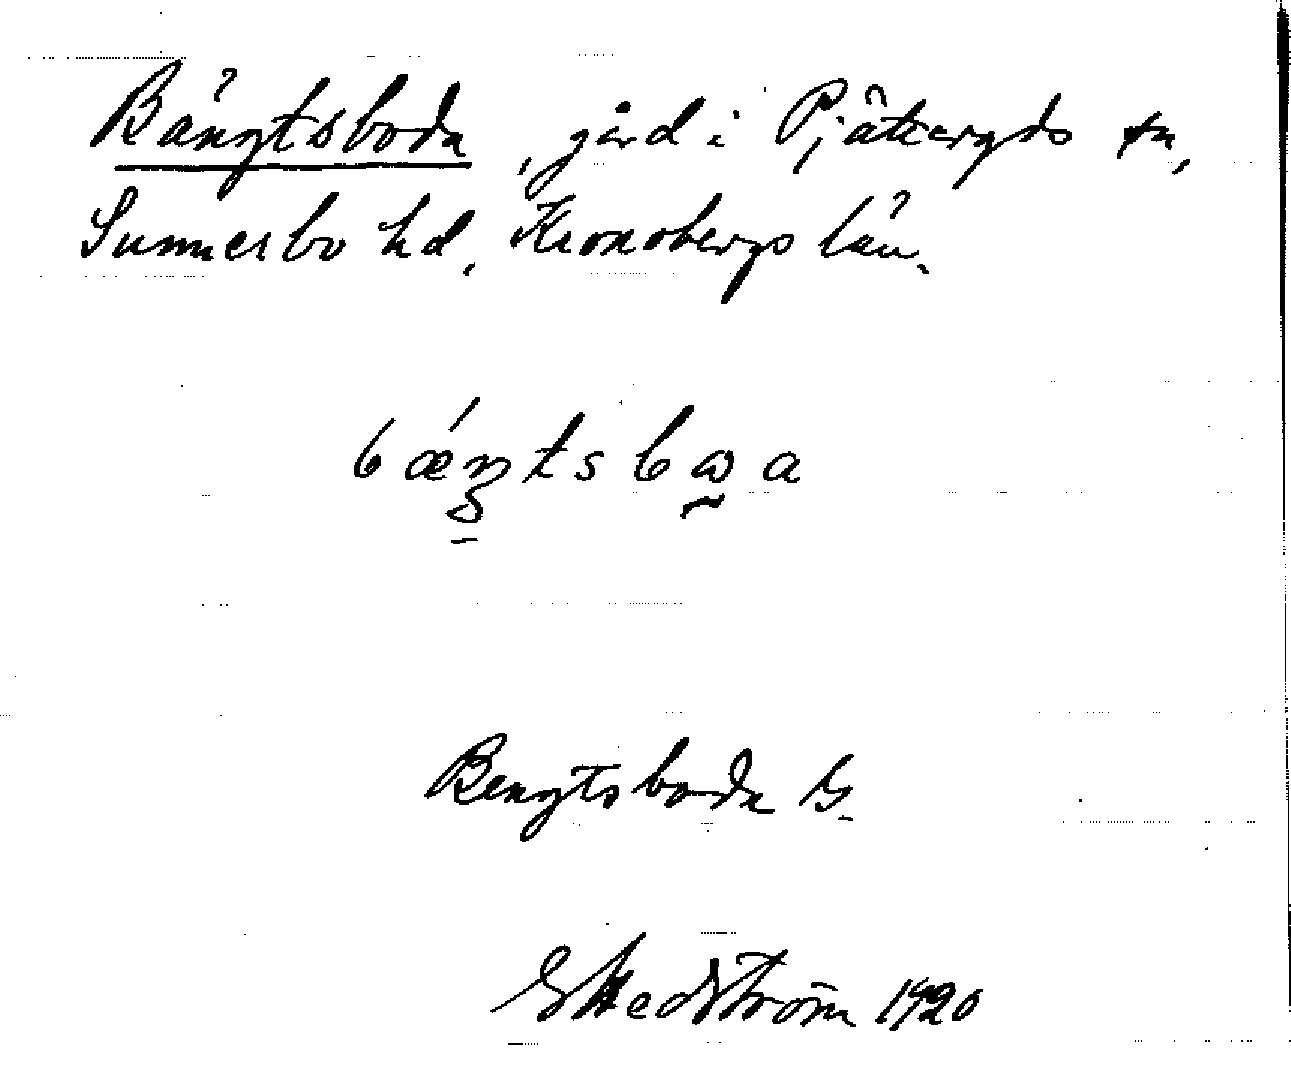 Bängtsboda, gård i Pjätteryds sn,
Sunnerbo hd, Kronobergs län.
Bengtsboda
G Hedström 1920